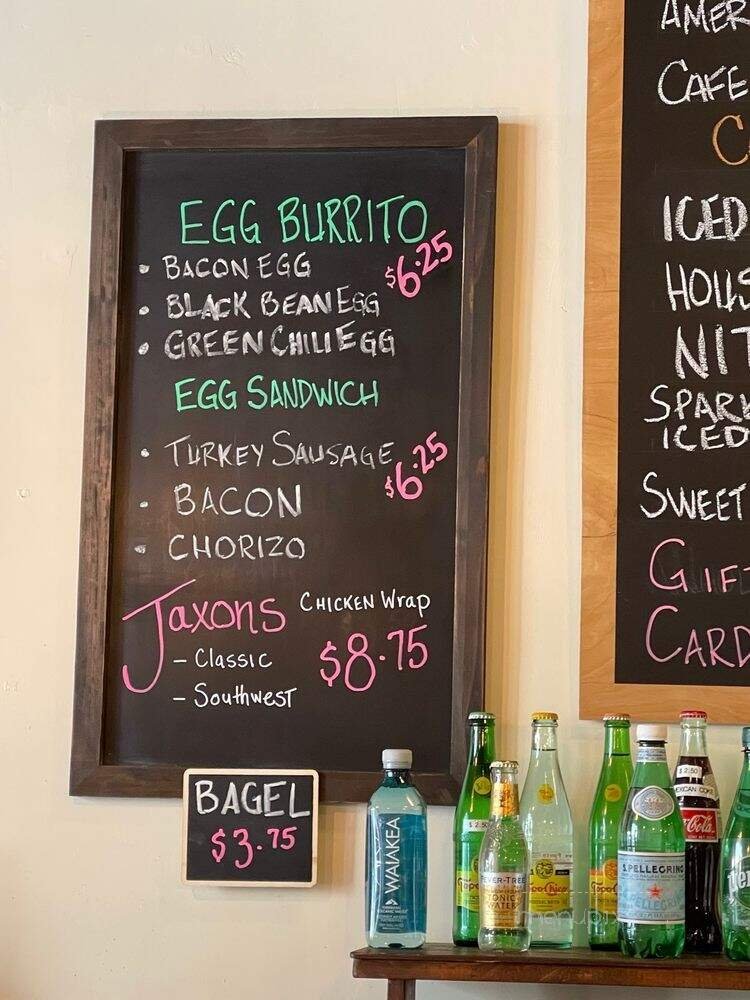 EGG BURRITO
$6.25
• BACON EGG
• BLACK BEAN EGG
• GREEN CHILI EGG
EGG SANDWICH
• TURKEY SAUSAGE
$6.25
• BACON
• CHORIZO
Jaxons CHICKEN Wrap
$8.75
- Classic
- Southwest
BAGEL
$3.75
AMER
CAFE
C
ICED
HOUS
NIT
SPARK
ICED
SWEET
GIFT
CARD
WAIAKEA
$2.50
Topo
EVER-TREE
TONIC
WATER
Topo-Chico
Topo
S.PELLEGRINO
$2.50
MEXICAN COKE
Coca-Cola